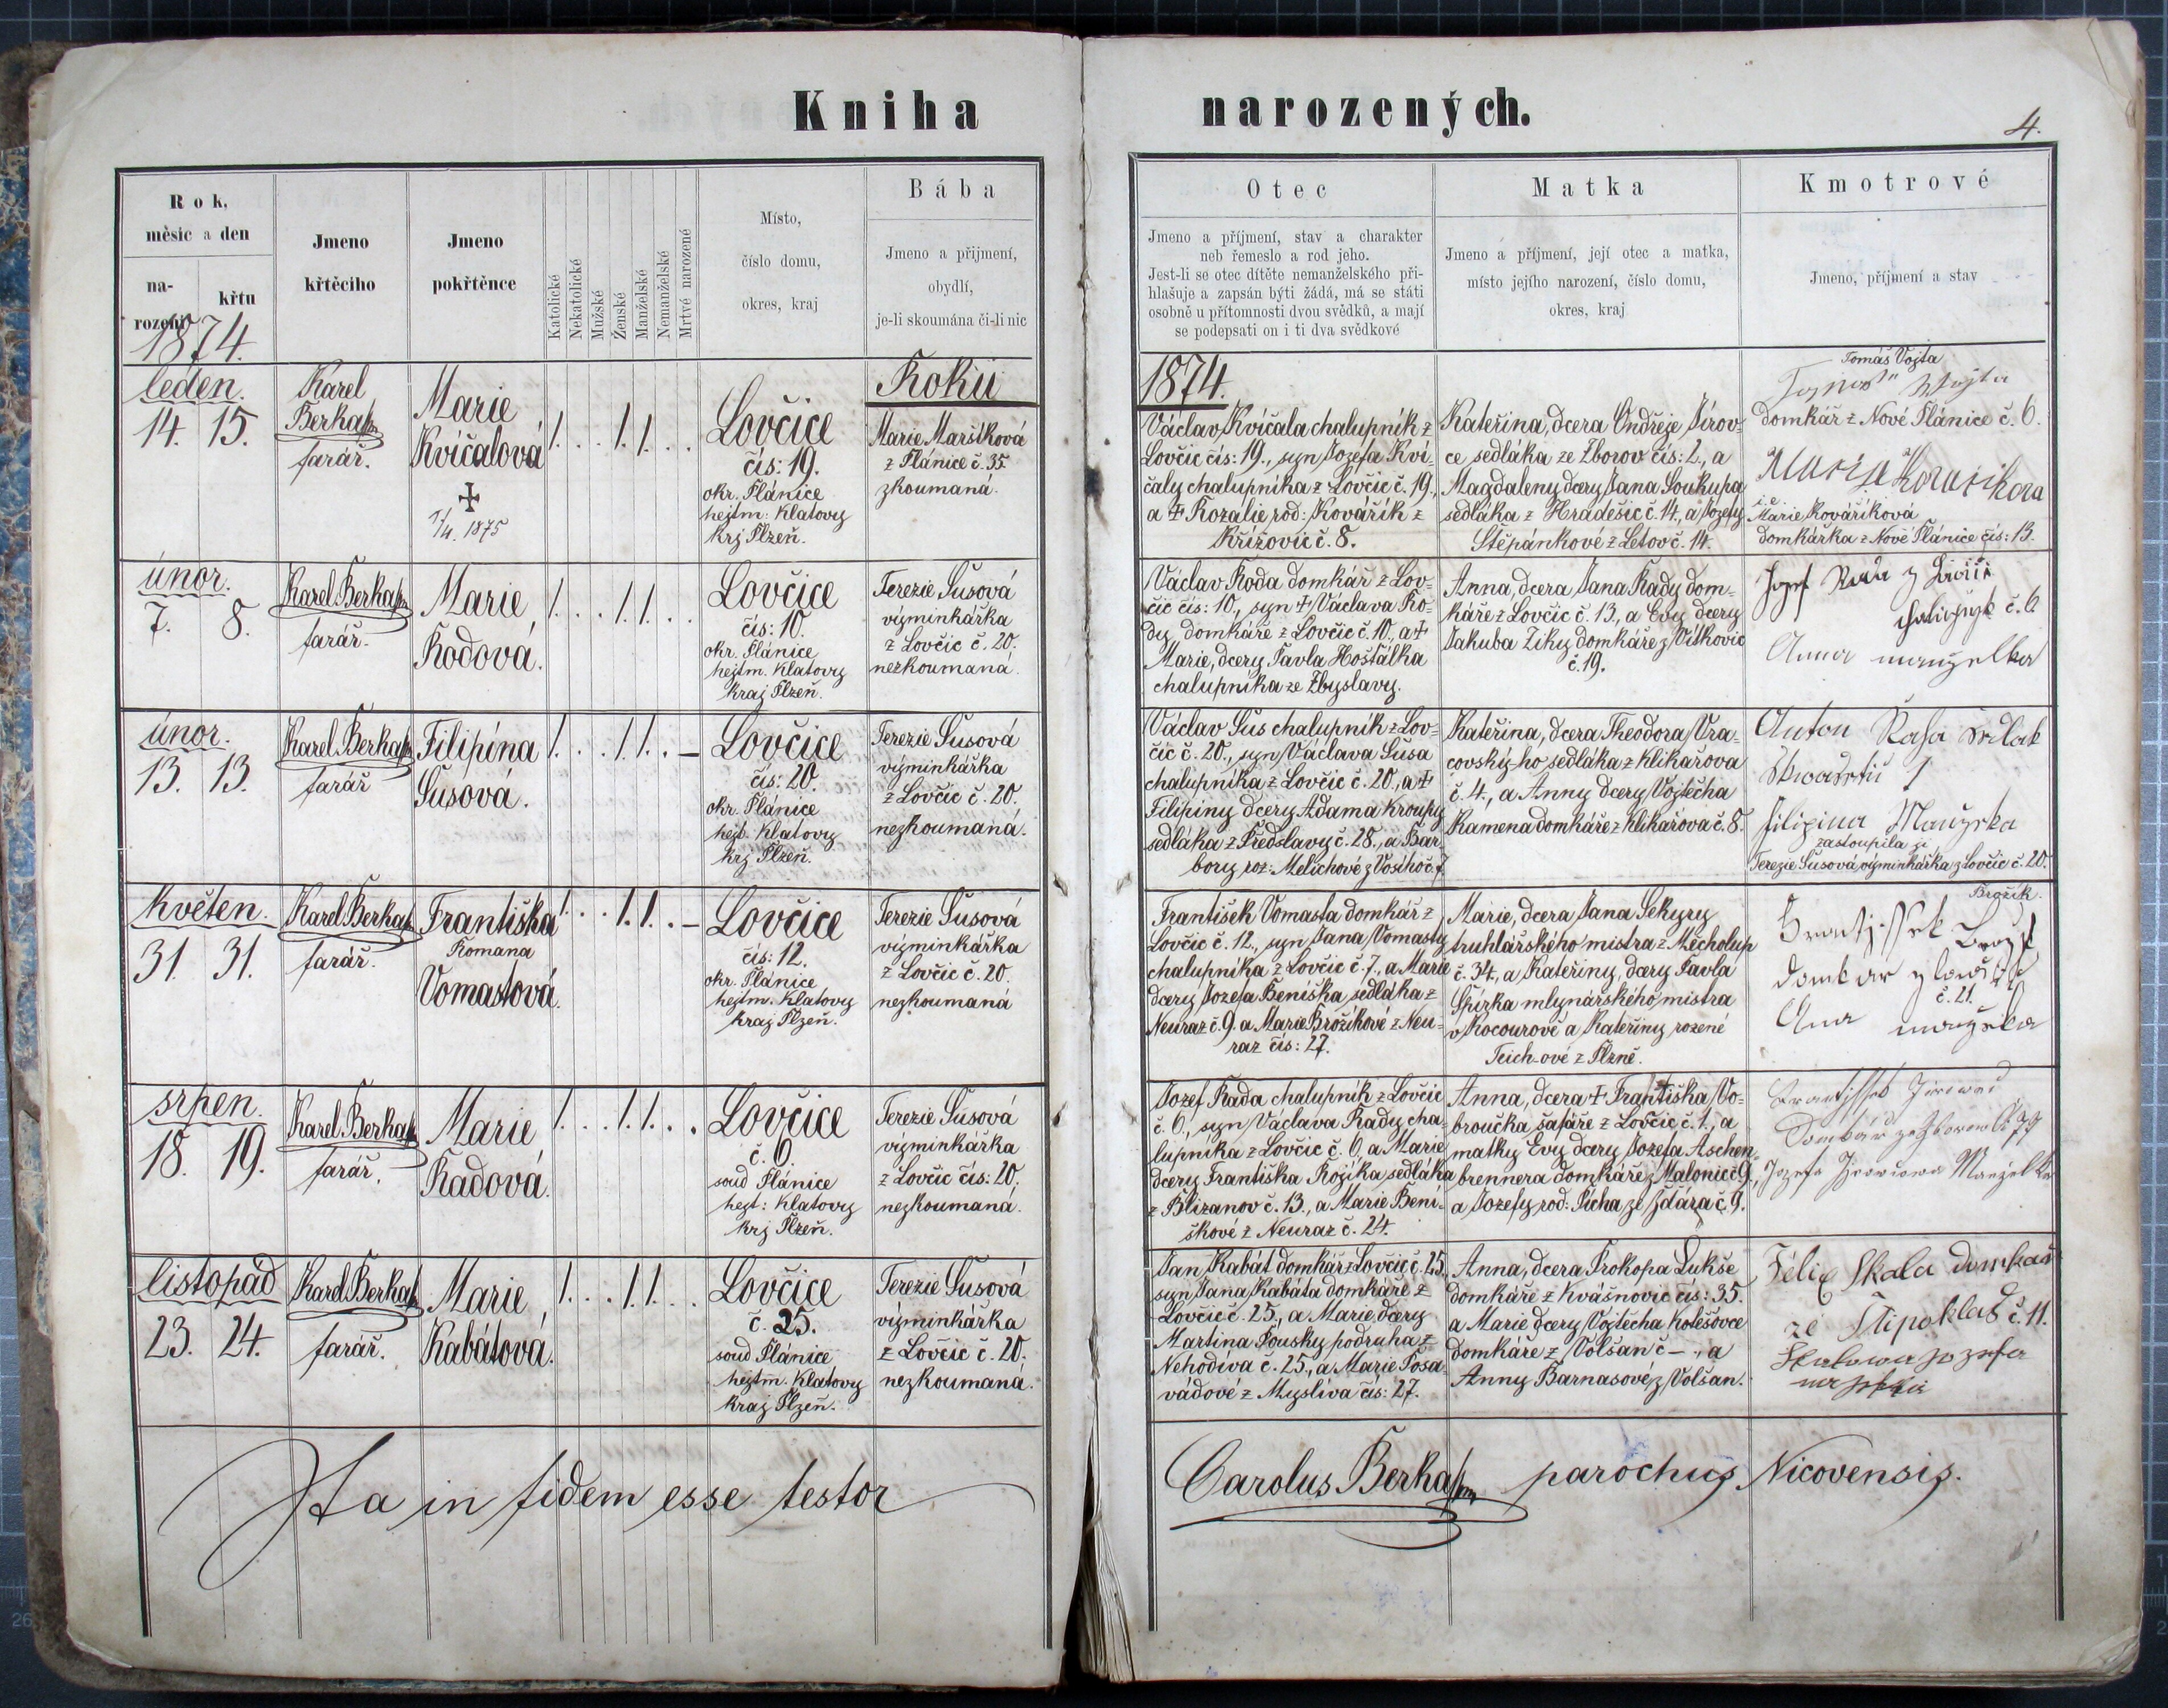 Kniha narozených.
4.
Rok, měsíc a den
narození
křtu
Jmeno křtěcího
Jmeno pokřtěnce
Katolické
Nekatolické
Mužské
Ženské
Manželské
Nemanželské
Mrtvé narozené
Místo,
číslo domu,
okres, kraj
Bába
Jmeno a přijmení,
obydlí,
je-li skoumána či-li nic
Otec
Jmeno a příjmení, stav a charakter
neb řemeslo a rod jeho.
Jest-li se otec dítěte nemanželského při-
hlašuje a zapsán býti žádá, má se státi
osobně u přítomnosti dvou svědků, a mají
se podepsati on i ti dva svědkové
Matka
Jmeno a příjmení, její otec a matka,
místo jejího narození, číslo domu,
okres, kraj
Kmotrové
Jmeno, příjmení a stav
1874.
Roku
1874.
leden.
14. 15.
Karel
Berka
farář.
Marie
Kvíčalová
1/4. 1875
1. . . 1. 1. . .
Lovčice
čís: 19.
okr. Plánice
hejtm: Klatovy
krj Plzeň.
Marie Maršíková
z Plánice č. 35.
zkoumaná.
Václav Kvíčala chalupník z
Lovčic čís: 19., syn Jozefa Kví-
čaly chalupníka z Lovčic č. 19.,
a Rozalie rod: Kovářík z
Křížovic č. 8.
Kateřina, dcera Ondřeje Jírov-
ce sedláka ze Zborov čís: 2., a
Magdaleny dcery Jana Soukupa
sedláka z Hradešic č. 14., a Jozefy
Štěpánkové z Letov č. 14.
Tomáš Vojta
domkář z Nové Plánice č. 6.
i.e.
Marie Kováříková
domkářka z Nové Plánice čís: 13.
únor.
7. 8.
Karel Berka
farář.
Marie
Rodová.
1. . . 1. 1. . .
Lovčice
čís: 10.
okr. Plánice
hejtm. Klatovy
kraj Plzeň.
Terezie Šusová
výminkářka
z Lovčic č. 20.
nezkoumaná.
Václav Roda domkář z Lov-
čic čís: 10., syn Václava Ro-
dy, domkáře z Lovčic č. 10., a
Marie, dcery Pavla Hošťálka
chalupníka ze Zbyslavy.
Anna, dcera Jana Rady dom-
káře z Lovčic č. 13., a Evy dcery
Jakuba Ziky domkáře z Vítkovic
č. 19.
č. 6
Anna manželka
únor.
13. 13.
Karel Berka
farář
Filipína
Šusová.
1. . . 1. 1. . –
Lovčice
čís: 20.
okr. Plánice
hejt. Klatovy
krj Plzeň.
Terezie Šusová
výminkářka
z Lovčic č. 20.
nezkoumaná.
Václav Šus chalupník z Lov-
čic č. 20., syn Václava Šusa
chalupníka z Lovčic č. 20., a
Filipiny dcery Adama Kroupy
sedláka z Předslavy č. 28., a Bar
bory roz: Melichové z Vosího č. 7.
Kateřina, dcera Theodora Vra-
covský-ho sedláka z Klikařova
č. 4., a Anny dcery Vojtěcha
Kamena domkáře z Klikařova č. 8.
Anton
Filipina
zastoupila ji
Terezie Šusová výminkářka z Lovčic č. 20.
květen.
31. 31.
Karel Berka
farář.
Františka
Romana
Vomastová.
1. . . 1. 1. . –
Lovčice
čís: 12.
okr. Plánice
hejtm. Klatovy
kraj Plzeň.
Terezie Šusová
výminkářka
z Lovčic č. 20.
nezkoumaná
František Vomasta domkář z
Lovčic č. 12., syn Jana Vomasty
chalupníka z Lovčic č. 7., a Marie
dcery Jozefa Beniška sedláka z
Neuraz č. 9. a Marie Brožíkové z Neu-
raz čís: 27.
Marie, dcera Jana Sekyry
truhlářského mistra z Měcholup
č. 34, a Kateřiny, dcery Pavla
Špirka mlynářského mistra
v Kocourově a Kateřiny rozené
Teich-ové z Plzně.
Brožík.
č. 21.
srpen.
18. 19.
Karel Berka
farář.
Marie
Radová.
1. . . 1. 1. . .
Lovčice
č. 6.
soud Plánice
hejt: Klatovy
krj Plzeň.
Terezie Šusová
výminkářka
z Lovčic čís: 20.
nezkoumaná.
Jozef Rada chalupník z Lovčic
č. 6., syn Václava Rady cha-
lupníka z Lovčic č. 6, a Marie
dcery Františka Rojíka sedláka
z Blizanov č. 13., a Marie Beni-
škové z Neuraz č. 24.
Anna, dcera Františka Vo-
broučka šafáře z Lovčic č. 1., a
matky Evy dcery Jozefa Aschen-
brennera domkáře z Malonic č. 9.,
a Jozefy rod: Pícha ze Ždára č. 9.
listopad
23. 24.
Karel Berka
farář.
Marie
Kabátová.
1. . . 1. 1. . .
Lovčice
č. 25.
soud Plánice
hejtm. Klatovy
kraj Plzeň.
Terezie Šusová
výminkářka
z Lovčic č. 20.
nezkoumaná.
Jan Kabát domkář z Lovčic č. 25.
syn Jana Kabáta domkáře z
Lovčic č. 25., a Marie, dcery
Martina Pousky podruha z
Nehodiva č. 25., a Marie Posa-
vádové z Myslíva čís: 27.
Anna, dcera Prokopa Lukše
domkáře z Kvášnovic čís: 35.
a Marie dcery Vojtěcha Kolešovce
domkáře z Volšan č –., a
Anny Barnasové z Volšan.
Félix Skala domkář
ze Štipoklas č. 11.
Ita in fidem esse testor
Carolus Berka parochus Nicovensis.